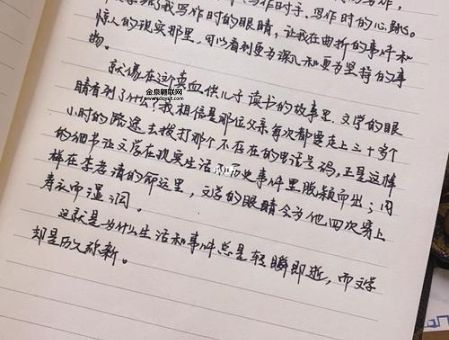 了我写作时的眼睛，写作时手，写作时的心跳。
让我在曲折的事件和
惊人的现实那里，可以看到更为深入和更为坚韧的事
物。
金泉翻联网
就像在这卖血供儿子读书的故事里，文学的眼
睛看到了什么？我相信是那位父亲每次都要走上三十多个
小时的路途去拨打那个不存在的电话号码，正是这样
的细节让文学在现实生活和历史事件里脱颖而出；同
样在李孝靖的命运里，文学的眼睛会为他四次穿上
寿衣而湿润。
这就是为什么生活和事件总是轻瞬即逝，而文学
却是历久弥新。